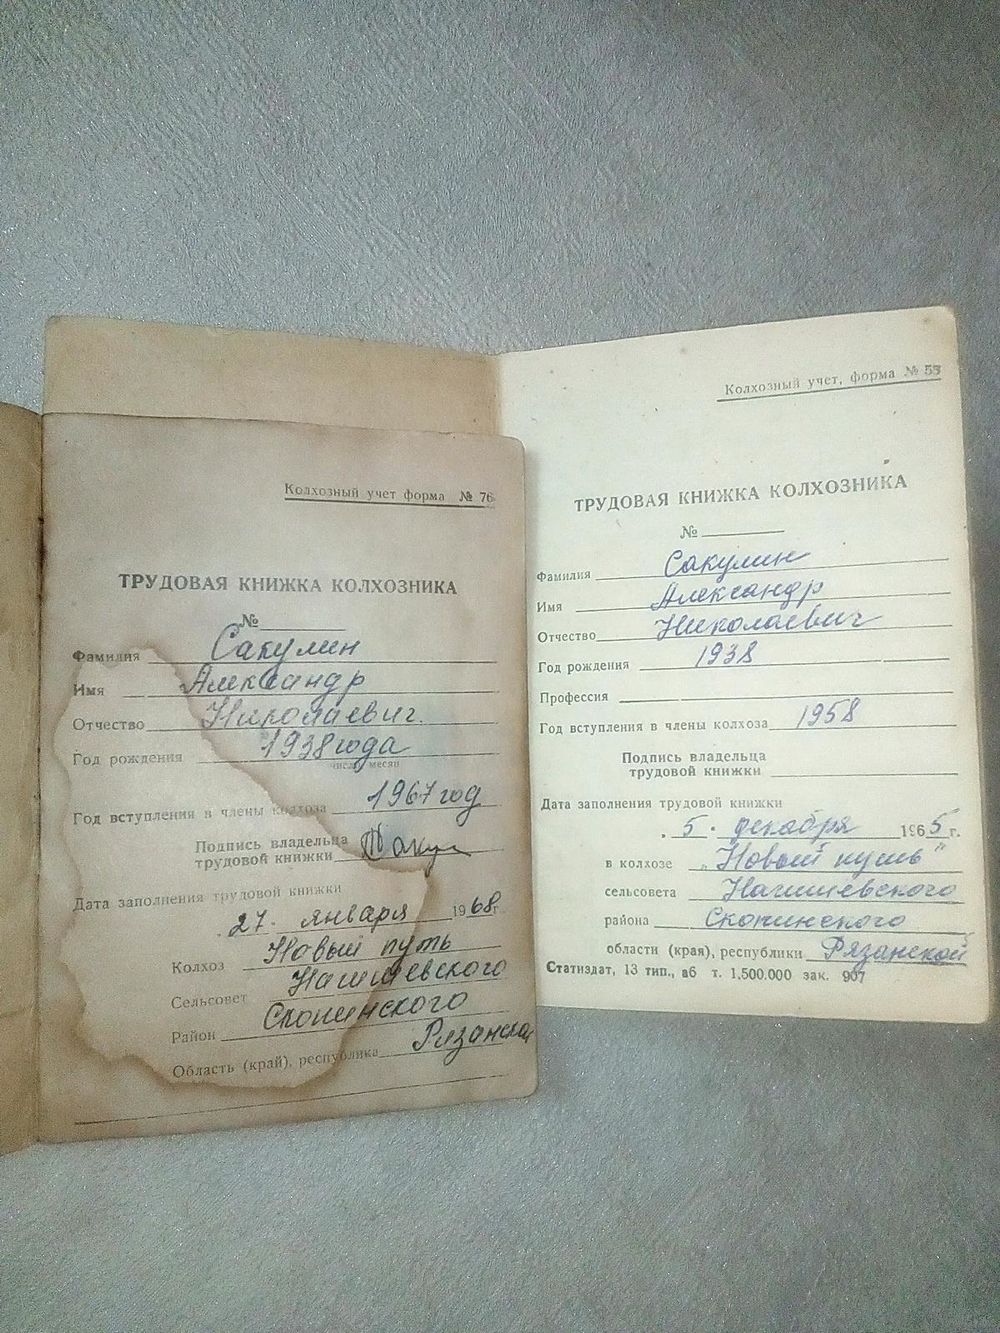 Колхозный учет форма № 76
ТРУДОВАЯ КНИЖКА КОЛХОЗНИКА
№
Фамилия Сакулин
Имя Александр
Отчество Николаевич.
Год рождения 1938 года
число, месяц
Год вступления в члены колхоза 1967 год
Подпись владельца
трудовой книжки Сакул
Дата заполнения трудовой книжки
27. января 1968г.
Колхоз Новый путь
Сельсовет Нагишевского
Район Скопинского
Область (край), республика Рязанской
Колхозный учет, форма № 53
ТРУДОВАЯ КНИЖКА КОЛХОЗНИКА
№
Фамилия Сакулин
Имя Александр
Отчество Николаевич
Год рождения 1938
Профессия
Год вступления в члены колхоза 1958
Подпись владельца
трудовой книжки
Дата заполнения трудовой книжки
„ 5 . декабря 1965 г.
в колхозе „Новый путь"
сельсовета Нагишевского
района Скопинского
области (края), республики Рязанской
Статиздат, 13 тип., аб т. 1.500.000 зак. 907